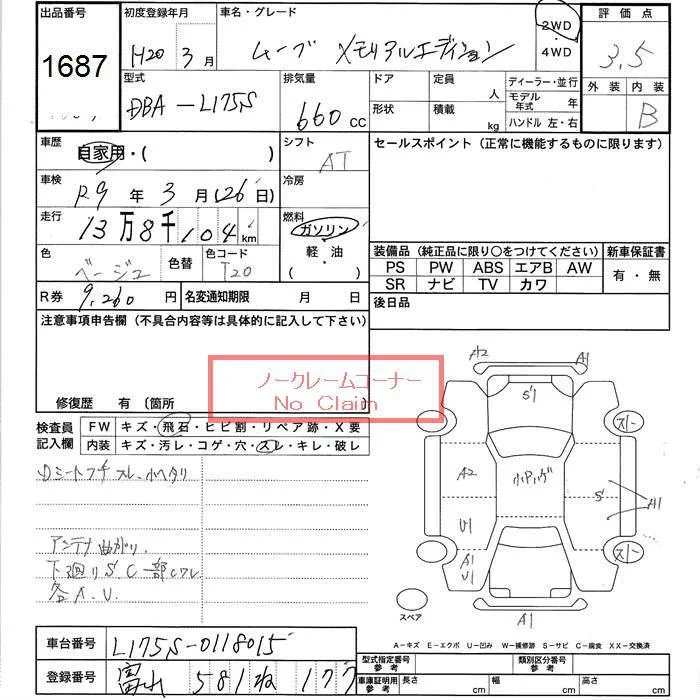 出品番号 初度登録年月 車名・グレード 2WD 評価点
1687 H20 3月 ムーブ メモリアルエディション 4WD 3.5
型式 排気量 ドア 定員 人 ディーラー・並行 外装 内装
DBA-L175S 660cc 形状 積載 kg モデル年式 年 B
ハンドル 左・右
車歴 自家用・( ) シフト AT セールスポイント(正常に機能するものに限ります)
車検 R9年3月(26日) 冷房
走行 13万8千104km 燃料 ガソリン
軽・油
( ・ )
色 ベージュ 色替 色コード T20
装備品(純正品に限り○をつけてください) 新車保証書
PS PW ABS エアB AW 有・無
SR ナビ TV カワ
R券 9,260円 名変通知期限 月 日 後日品
注意事項申告欄(不具合内容等は具体的に記入して下さい)
ノークレームコーナー
No Claim
修復歴 有〔箇所
検査員記入欄 FW キズ・飛石・ヒビ割・リペア跡・X要
内装 キズ・汚レ・コゲ・穴・スレ・キレ・破レ
スレ、小ヘタリ
アンテナ曲がり.
下廻りS.C一部
各A.U.
A2 A1
S1
スト スト
A2 S A1
U1
A1
U1
スト
A1
スペア
A-キズ E-エクボ U-凹み W-補修跡 S-サビ C-腐食 XX-交換済
車台番号 L175S-0118015
登録番号 富山 581 ね 177
型式指定番号 参考 類別区分番号 参考
車庫証明用 参考 長さ cm 幅 cm 高さ cm